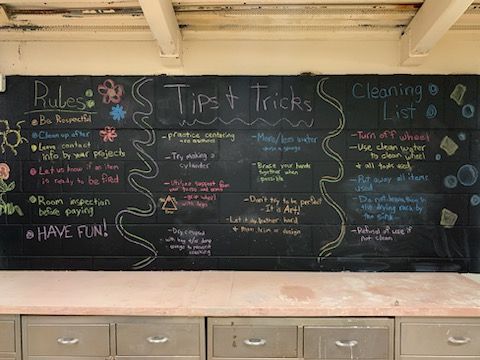 Rules
Be Respectful
Clean up after
Leave contact
info by your projects
Let us know if an item
is ready to be fired
Room inspection
before paying
HAVE FUN!
Tips & Tricks
- practice centering
- Try making a
- Utilize support from
- Dry
- More/less water
- Brace your hands
together when
possible
- Don't try to be perfect
- It is Art!
- Let it dry leather hard
Cleaning
List
- Turn off wheel
- Use clean water
to clean wheel
& all tools used
- Put away all items
used
- Do not leave them in
the drying rack by
the sink
- Refusal of use if
not clean